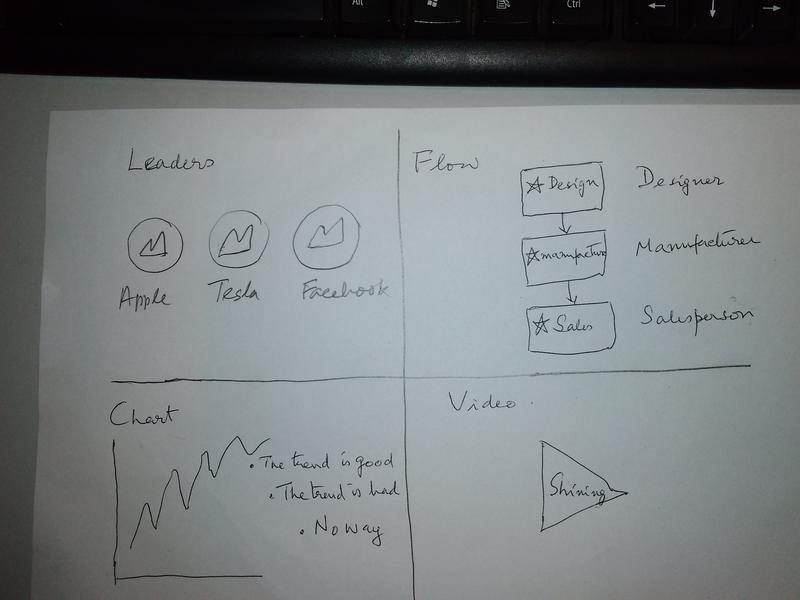 Alt
Ctrl
Leaders
Apple Tesla Facebook
Flow
Design Designer
manufacture Manufacturer
Sales Salesperson
Chart
• The trend is good
• The trend is bad
• No way
Video
Shining